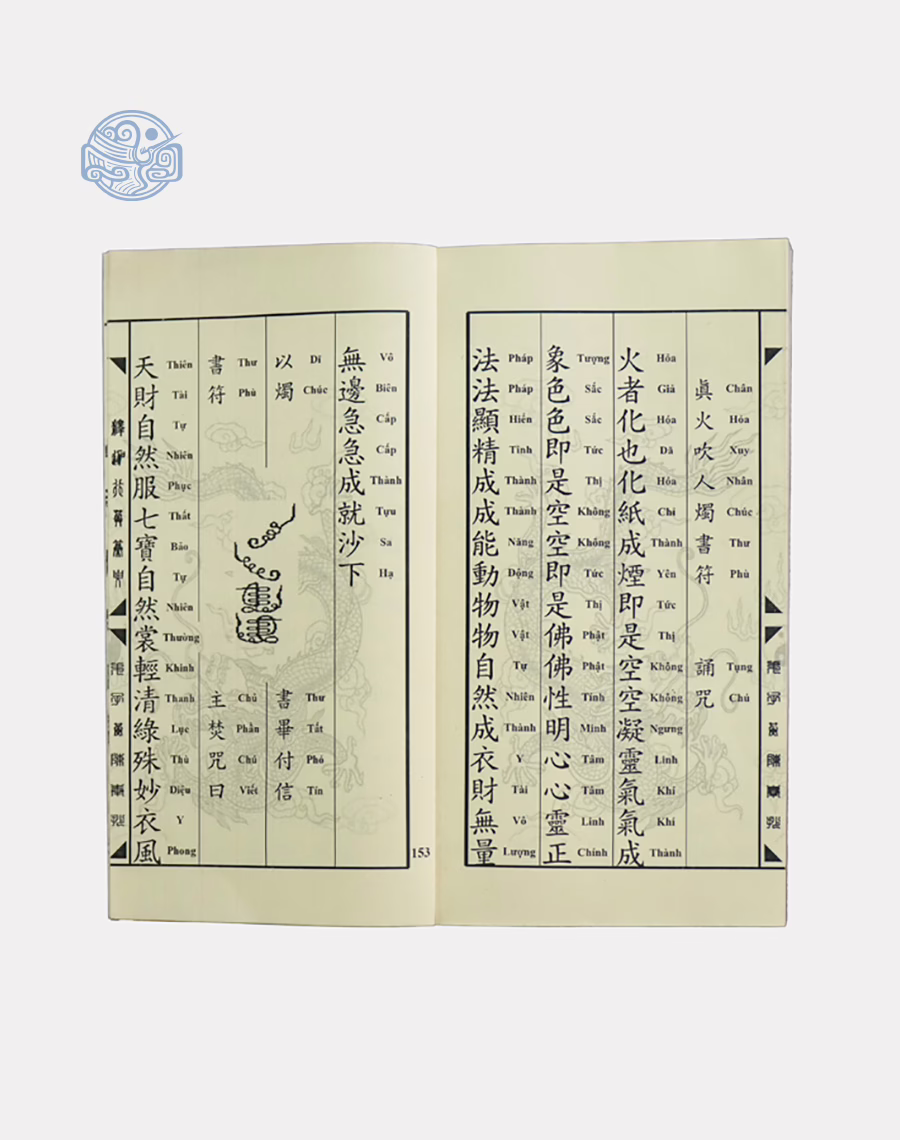 眞火吹人燭書符 誦咒
Chân Hỏa Xuy Nhân Chúc Thư Phù Tụng Chú
火者化也化紙成煙即是空空凝靈氣氣成
Hỏa Giả Hóa Dã Hóa Chỉ Thành Yên Tức Thị Không Không Ngưng Linh Khí Khí Thành
象色色即是空空即是佛佛性明心心靈正
Tượng Sắc Sắc Tức Thị Không Không Tức Thị Phật Phật Tính Minh Tâm Tâm Linh Chính
法法顯精成成能動物物自然成衣財無量
Pháp Pháp Hiển Tinh Thành Thành Năng Động Vật Vật Tự Nhiên Thành Y Tài Vô Lượng
無邊急急成就沙下
Vô Biên Cấp Cấp Thành Tựu Sa Hạ
以燭
Dĩ Chúc
書符
Thư Phù
書畢付信
Thư Tất Phó Tín
主焚咒曰
Chủ Phần Chú Viết
天財自然服七寶自然裳輕清綠殊妙衣風
Thiên Tài Tự Nhiên Phục Thất Bảo Tự Nhiên Thường Khinh Thanh Lục Thù Diệu Y Phong
153